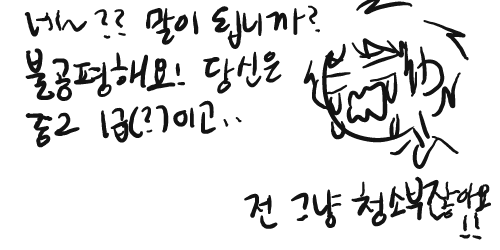 네~?? 말이 됩니까?
불공평해요! 당신은
중2 1급(?)이고..
전 그냥 청소부잖아요!!